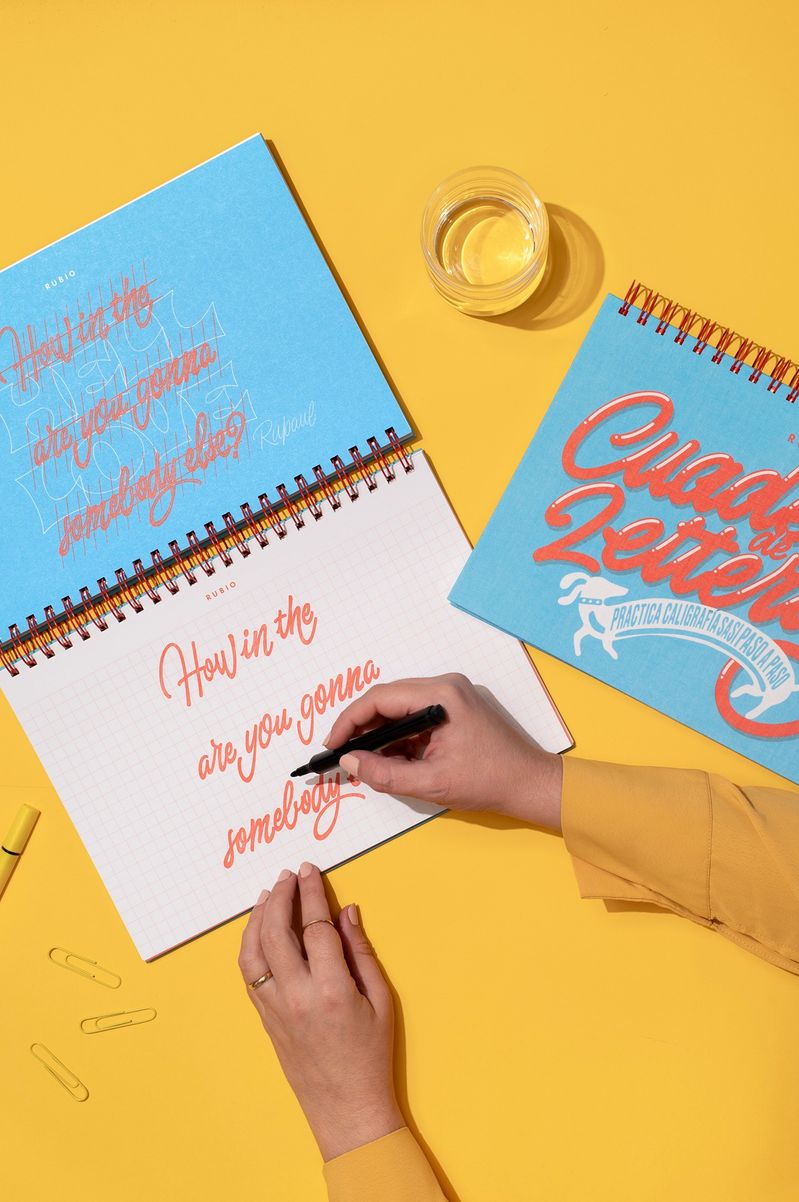 RUBIO
How in the
HELL
are you gonna
LOVE
somebody else?
Rupaul
RUBIO
How in the
are you gonna
somebody
de
PRACTICA CALIGRAFIAS ASI PASO A PASO